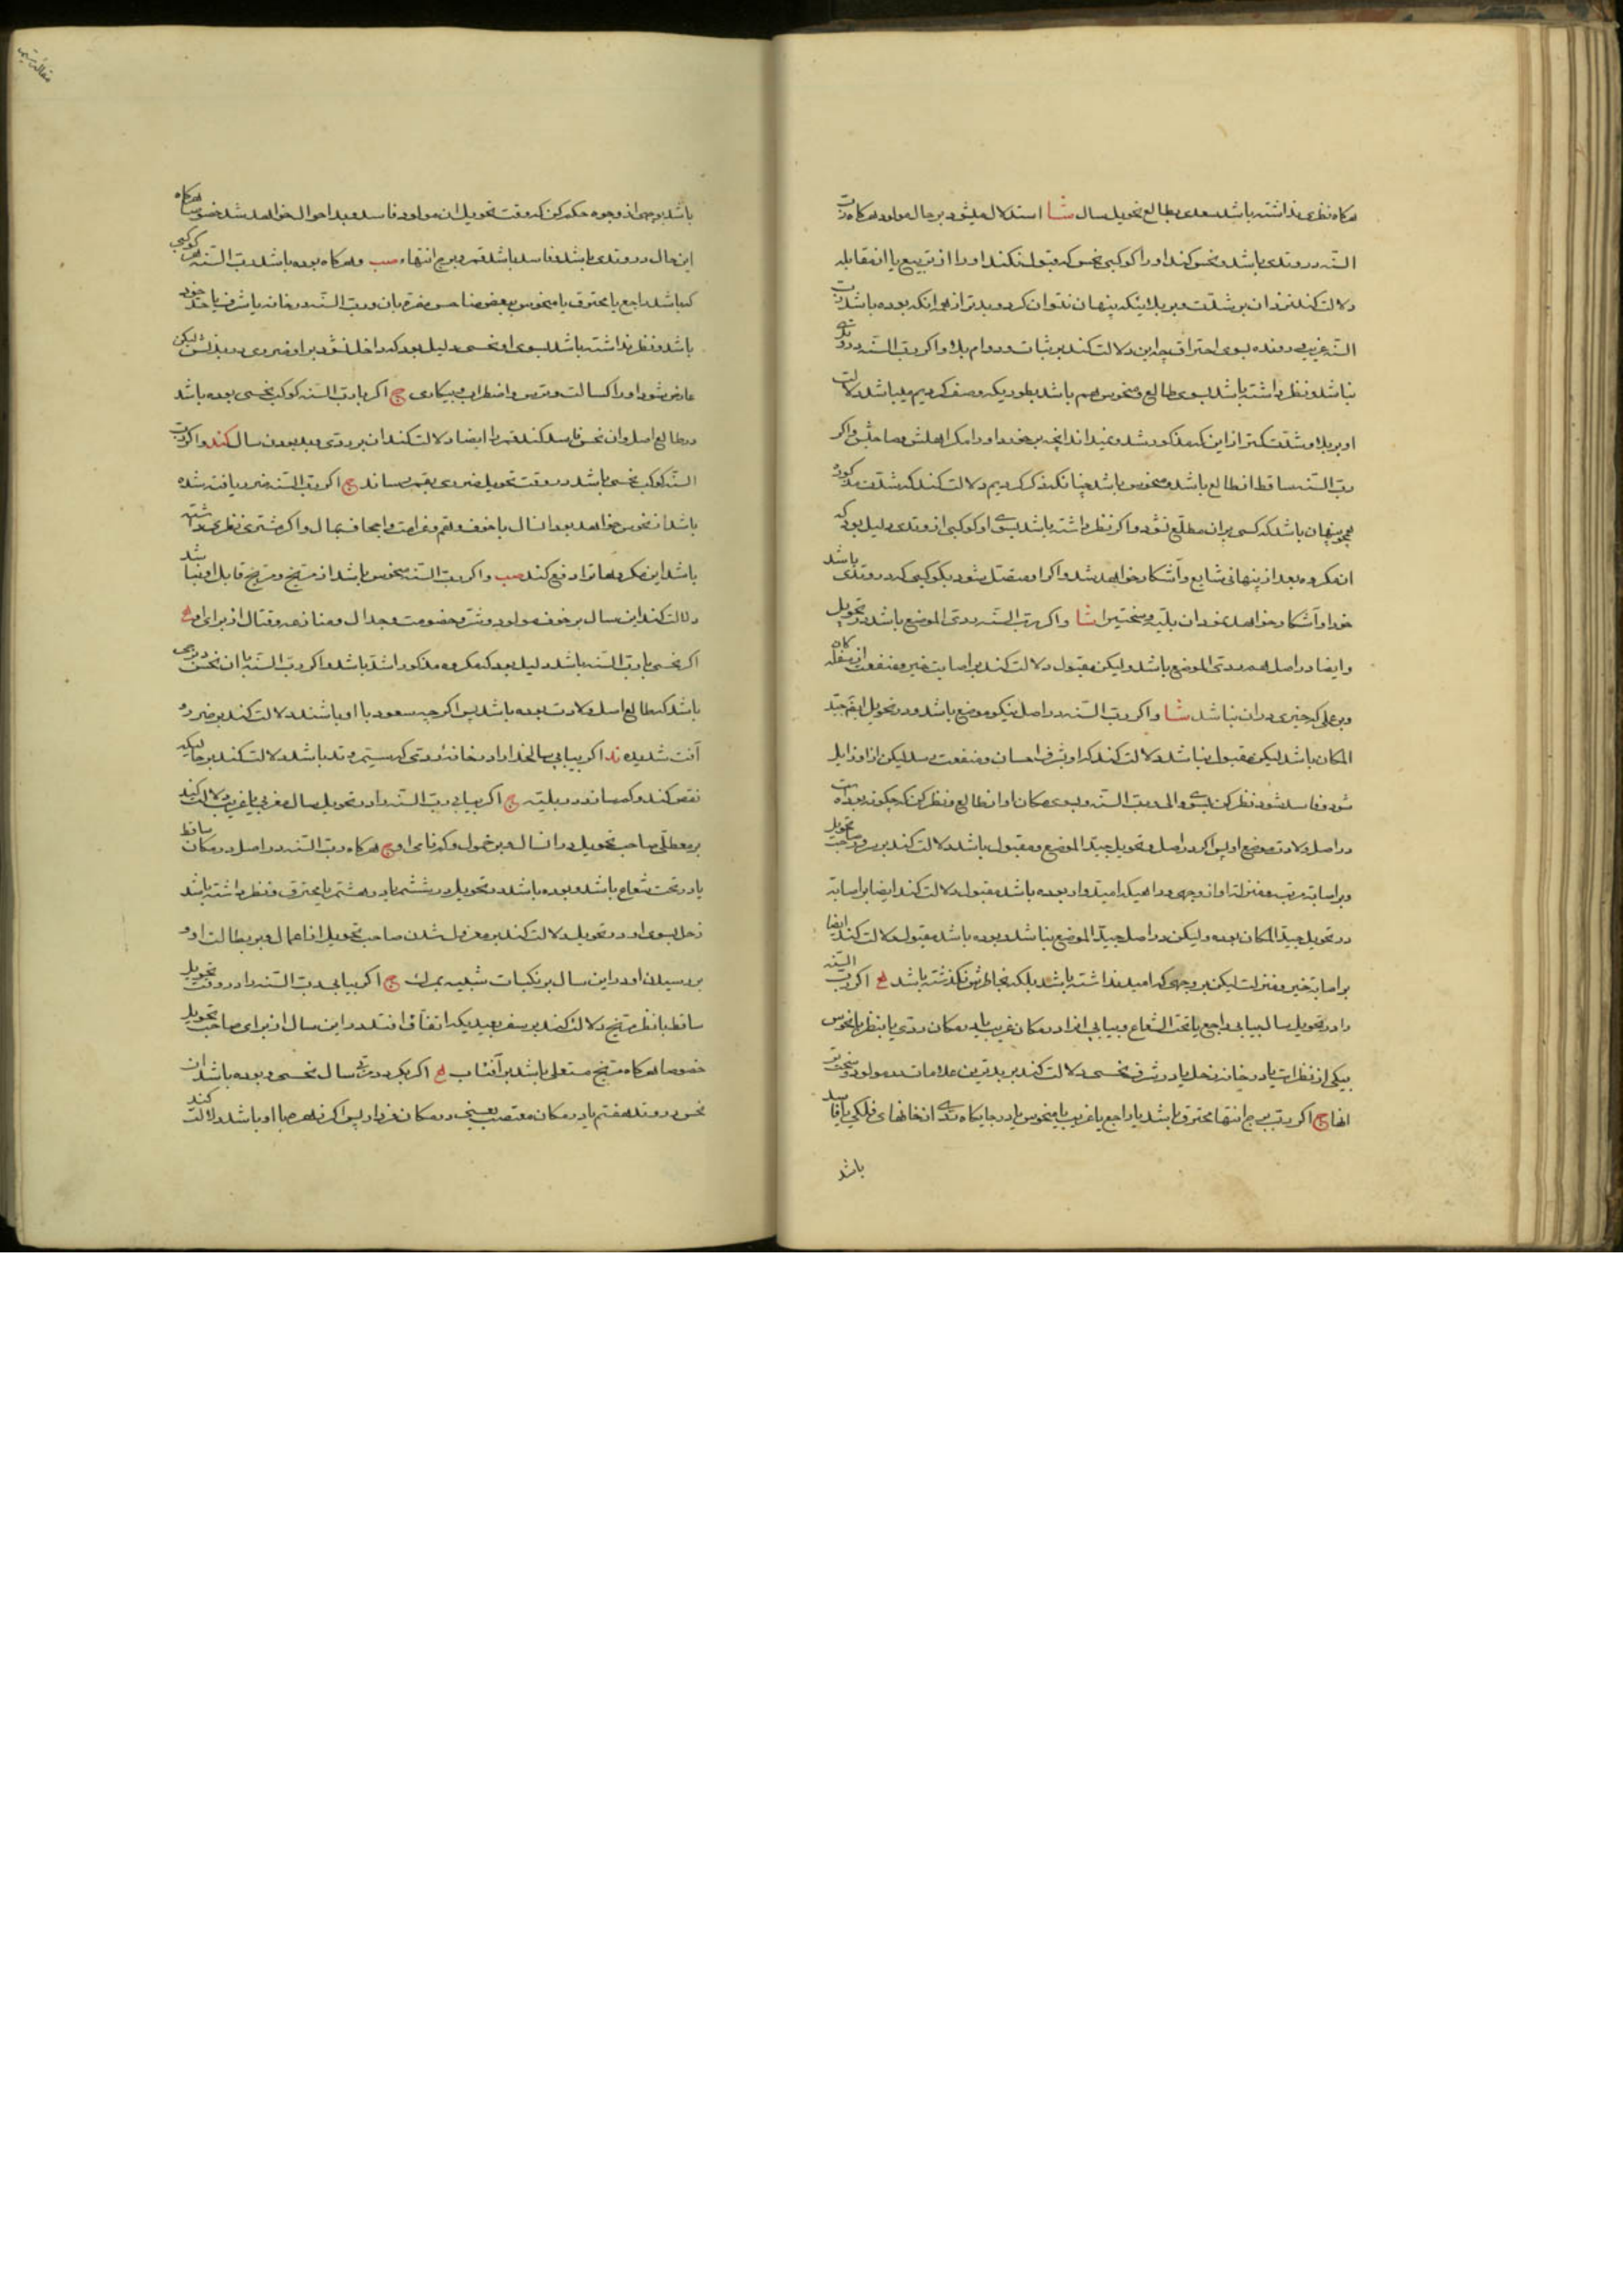 هرکاه نظری نداشته باشد سعدی بطالع تحویل سال شا استدلال میشود بر حال مولود هرکاه رب
السنه در وتدی باشد و نحس کند او را کوکبی نحس که قبول نکند او را از تربیع یا از مقابله
دلالت کند نمودان بر شدت و بر بلا اینکه پنهان نتوان کرد و بدتر از همه انکه بوده باشد رب
السنه غریبی رونده بسوی احتراق چه این دلالت کند بر ثبات و دوام بلا و اکر رب السنه در وتدی
نباشد و نظر داشته باشد بسوی طالع و منحوس هم باشد بطوریکه وصف کردیم میباشد دلالت
او بر بلا و شدت کمتر از این که مذکور شد و نمیداند انچه بر خورد او را مکر اهلش و صاحبش و اکر
رب السنه ساقط از طالع باشد و منحوس باشد چنانکه ذکر کردیم دلالت کند که شدت مذکوره
پنهان باشد که کسی بران مطلع نشود و اکر نظر داشته باشد بسوی او کوکبی از وتدی دلیل بود که
ان مکروه بعد از پنهانی شایع و آشکار خواهد شد و اکر او متصل شود بکوکبی که در وتدی باشد
خود او آشکار خواهد نمود ان بلیه و سختی را شا و اکر رب السنه ردی الموضع باشد در تحویل
و ایضا در اصل هم ردی الموضع باشد و لیکن مقبول دلالت کند بر اصابت خیر و منفعت از سفله کان
و بر عملی که خیری دران نباشد شا و اکر رب السنه در اصل نیکو موضع باشد و در تحویل ایضا جید
المکان باشد لیکن مقبول نباشد دلالت کند که او بشرف احسان و منفعت رسد لیکن از او زایل
شود و فاسد شود نظر کن بسوی والمه رب السنه و بسوی مکان او از طالع و نظر کن که چکونه بوده است
در اصل ولادت موضع او پس اکر در اصل و تحویل جید الموضع و مقبول باشد دلالت کند بر سرور صاحب تحویل
و بر اصابه مرتبه و منزلت او از وجهی و راهی که امیدوار بوده باشد مقبول دلالت کند ایضا بر اصابه
در تحویل جید المکان بوده و لیکن در اصل جید الموضع نباشد و بوده باشد مقبول دلالت کند ایضا
بر اصابه خیر و منزلت لیکن بر وجهی که امید نداشته باشد بلکه بخاطرش نکذشته باشد اکر رب السنه
را در تحویل سال بیابی راجع یا تحت الشعاع و بیابی انرا در مکان غریب یا در مکان ردی یا بنظر یا نحوس
بیکی از نظرات یا در خانه زحل یا در شرف نحسی دلالت کند بر بدترین علامات در مولود و سختی تر
انها ج اکر رب برج انتها محترق باشد یا راجع یا غریب یا منحوس یا در جایکاه بدی از خانهای فلکی یا فاسد
باشد
باشد بوجهی از وجوه حکم کن که وقت تحویل ان مولود فاسد و بد احوال خواهد شد خصوصا هرکاه
این حال در وتدی باشد فاسد باشد قمر و برج انتهاء صب و هرکاه بوده باشد رب السنه هر کوکبی
که باشد راجع یا محترق یا منحوس و بعضی مناحس مضره بان و رب السنه در خانه یا شرف یا حد خود
باشد و نظر نداشته باشد بسوی او نحسی دلیل بود که داخل نشود بر او ضرری در بدنش و لیکن
عارض شود او را کسالت و ترس و اضطراب و بیکاری ج اکر با رب السنه کوکب نحسی بوده باشد
در طالع اصل و ان نحس فاسد کند قمر را ایضا دلالت کند ان بر ردی و بد بودن سال کند و اکر رب
السنه کوکب نحسی باشد در وقت تحویل ضرری بقمر رساند ج اکر رب السنه ضرر یافته شده
باشد از نحوس خواهد بود انسال با خوف و غم و غرامت و اجحاف بمال و اکر مشتری نظری داشته
باشد این مکروهات را دفع کند صب و اکر رب السنه منحوس باشد از مریخ و مریخ قابل او نباشد
دلالت کند این سال بر خوف مولود و شر و خصومت و جدال و منازعه و قتال از برای او
اکر نحسی با رب السنه باشد دلیل بود که مکروه مذکور اشد باشد و اکر رب السنه با ان نحس در برجی
باشد که طالع اصل ولادت بوده باشد پس اکر چه سعود با او باشند دلالت کند بر ضرر و
آفت شدیده ند اکر بیابی سالخدا را در خانه ردی که سیتم وتد باشد دلالت کند بر حالیکه
نقص کند و کم رساند در بلیه ج اکر بیابی رب السنه را در تحویل سال مغربی یا غریب دلالت کند
بر معطلی صاحب تحویل در انسال و بر خمول و کم نامی او ج هرکاه رب السنه در اصل در مکان ساقط
یا در تحت شعاع باشد و بوده باشد در تحویل در ششم یا در هشتم یا محترق و نظر داشته باشد
زحل بسوی او در تحویل دلالت کند بر معزول شدن صاحب تحویل از اعمال و بر بطالت او و
بر رسیدن او در این سال بر نکبات شبیه بمرک ج اکر بیابی رب السنه را در وقت تحویل
ساقط با نظر مریخ دلالت کند بر سفر بعید یکه اتفاق افتد در این سال از برای صاحب تحویل
خصوصا هرکاه مریخ مستعلی باشد بر آفتاب اکر یکی در رب سال نحسی و بوده باشد ان
نحس در وتد هفتم یا در مکان مغتصب یعنی در مکان فرار پس اکر زهره با او باشد دلالت کند